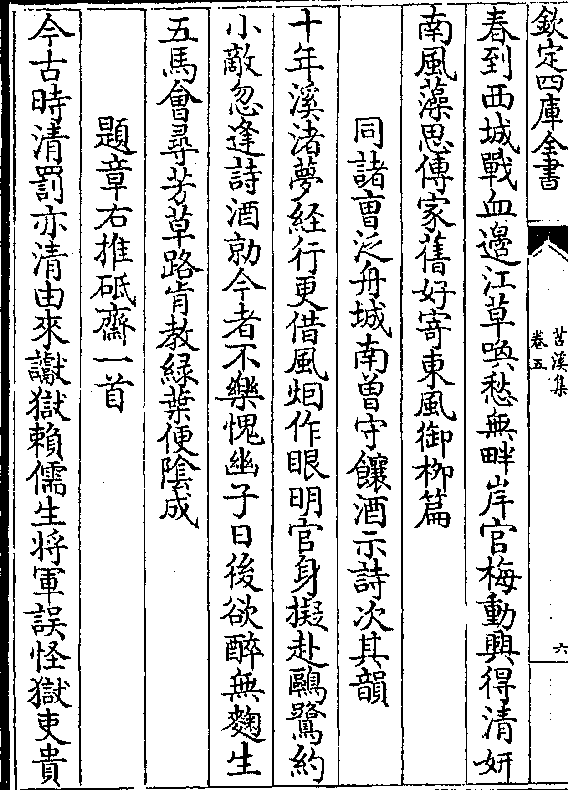 欽定四庫全書
苕溪集
卷五
六
春到西城戰血邊江草喚愁無畔岸官梅動興得清妍
南風藻思傳家舊好寄東風御栁篇
同諸曹泛舟城南曽守饟酒示詩次其韻
十年溪渚夢経行更借風烟作眼明官身擬赴鷗鷺約
小敵忽逢詩酒勍今者不樂愧幽子日後欲醉無麴生
五馬會尋芳草路肯教緑葉便陰成
題章右推砥齋一首
今古時清罰亦清由來讞獄賴儒生将軍誤怪獄吏貴